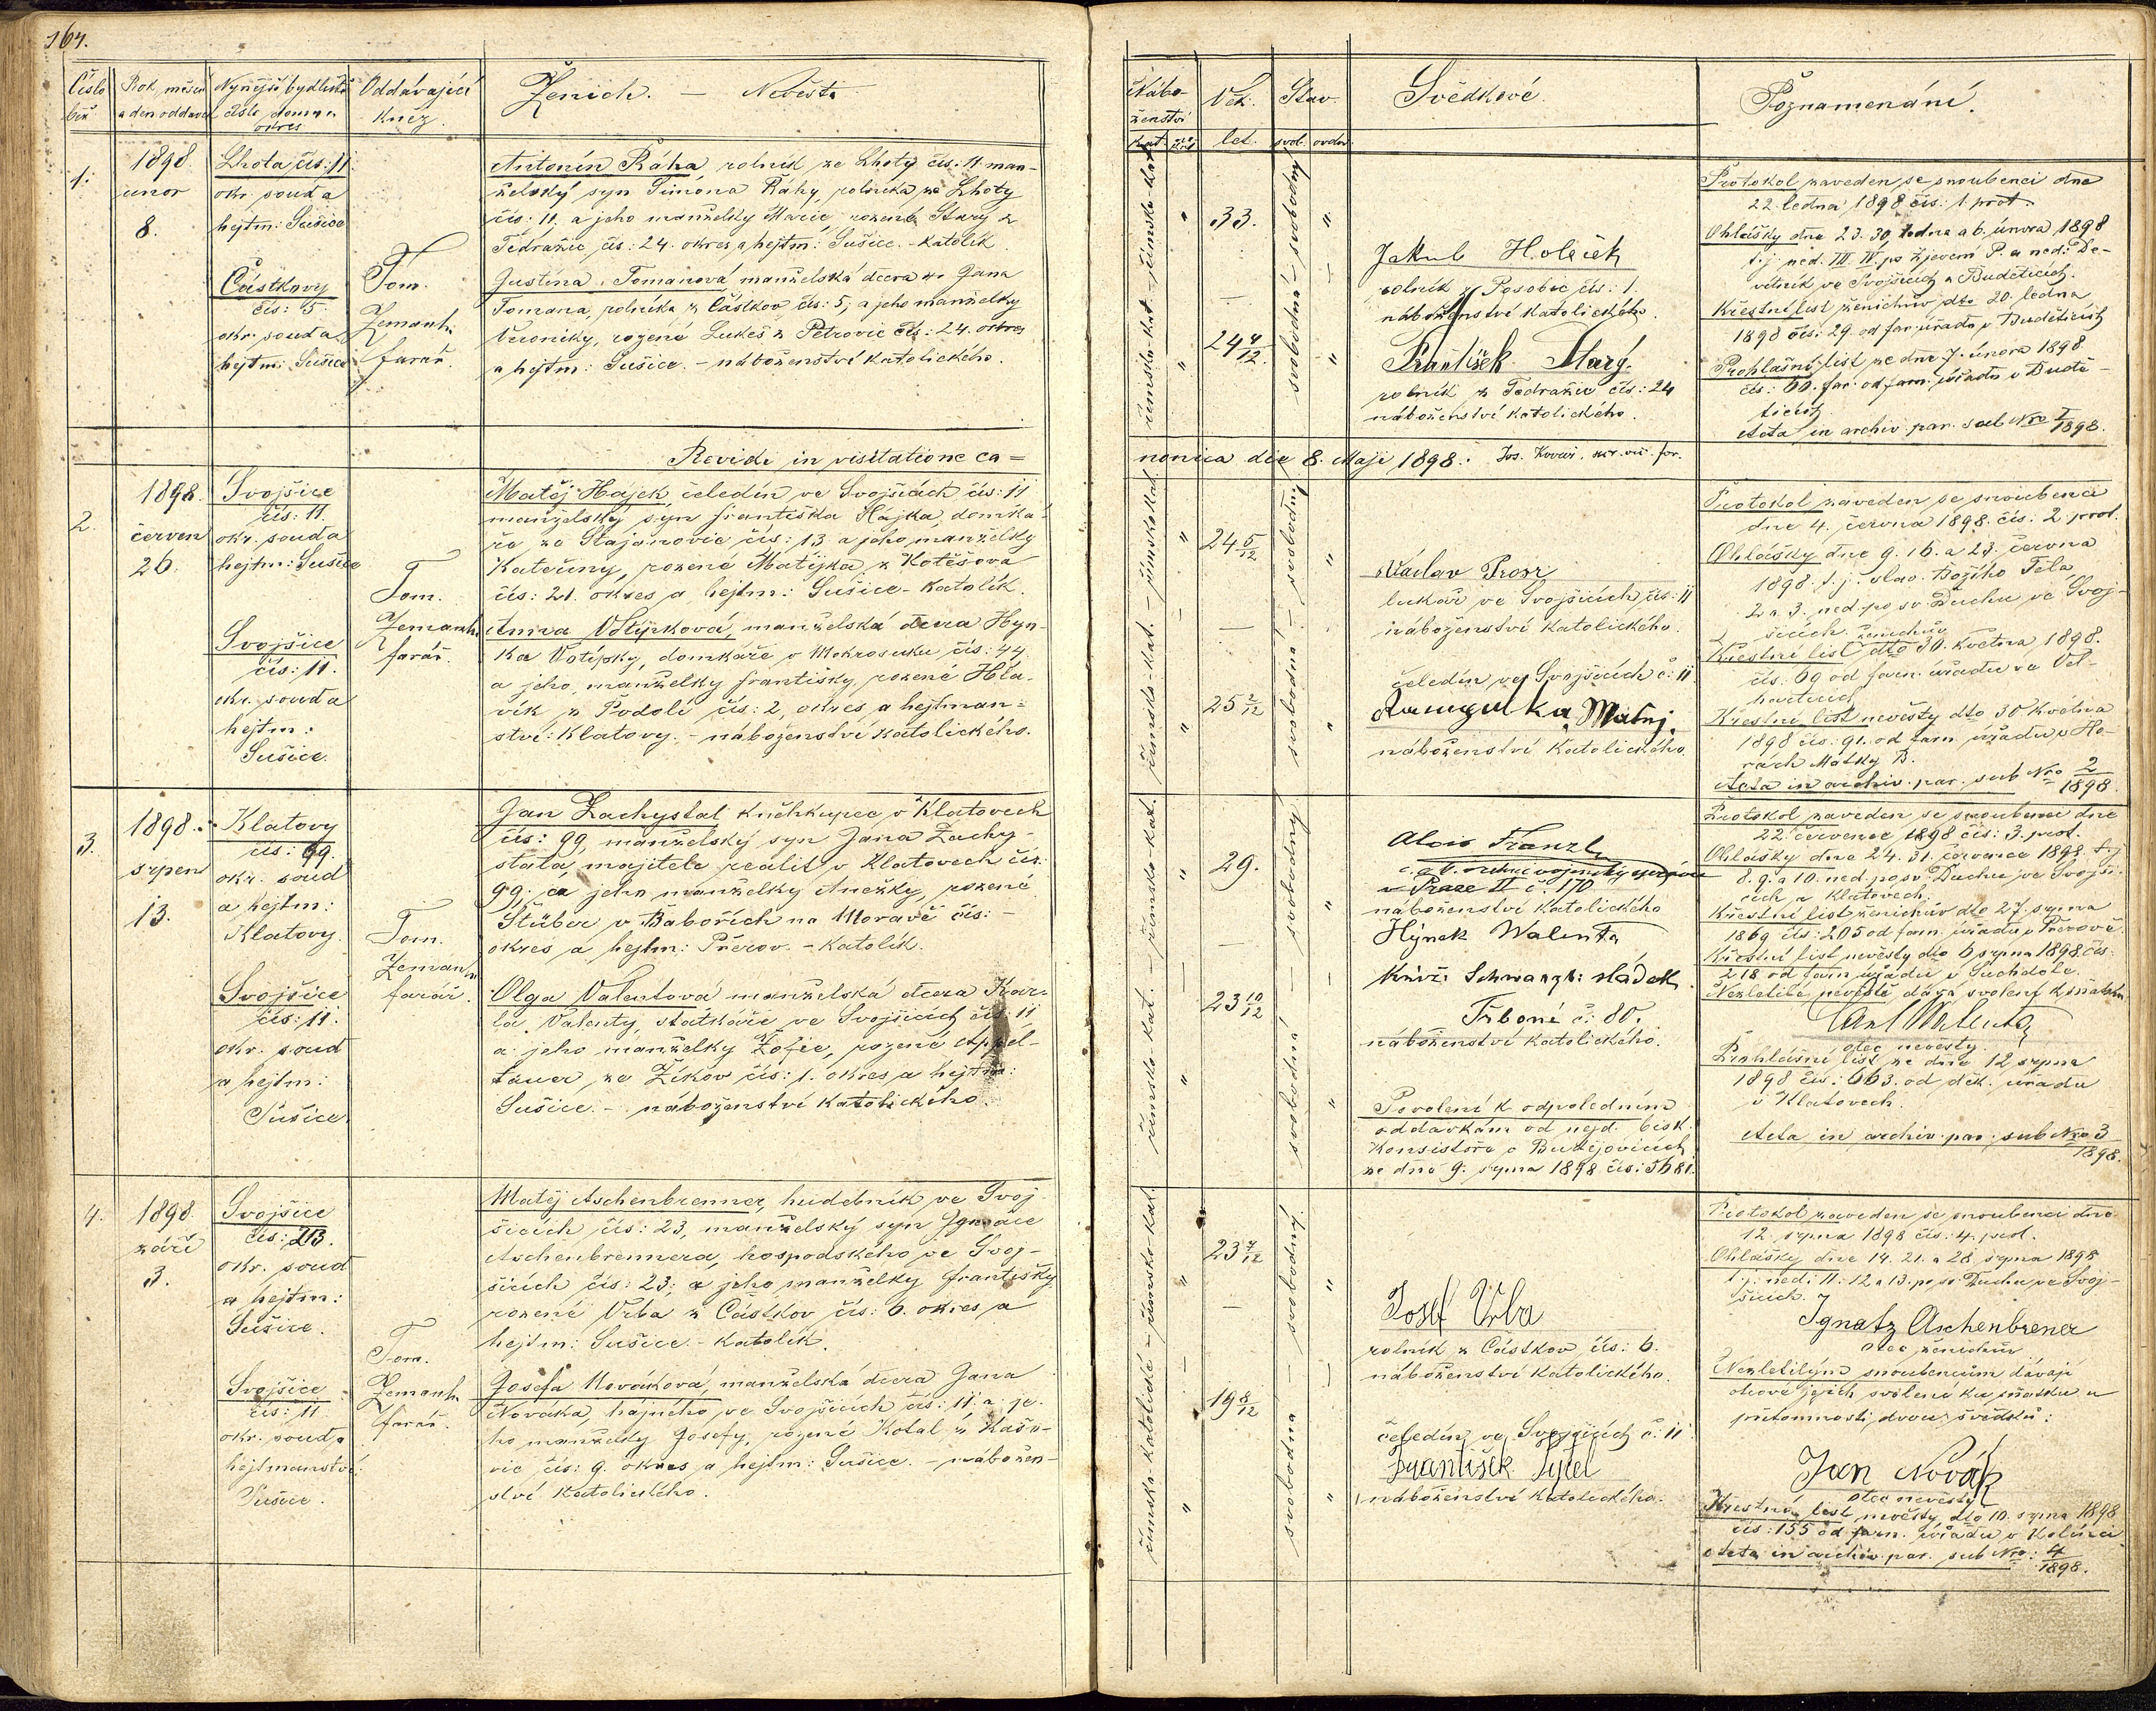 164.
Číslo běž.
Rok, měsíc a den oddavek
Nynější bydliště číslo domu a okres
Oddávající kněz.
Ženich. — Nevěsta
Nábo-
ženství
kat.
Věk.
let.
Stav.
svob. ovdov.
Svědkové.
Poznamenání.
1.
1898
únor
8.
Lhota čís: 11.
okr. souda
hejtm: Sušice
Částkovy
čís: 5.
okr. souda
hejtm: Sušice
Tom.
Zemann
farář.
Antonín Ráha, rolník ze Lhoty čís: 11 man-
želský syn Šimona Ráhy, rolníka ze Lhoty
čís: 11, a jeho manželky Marie rozené Starý z
Tedražic, čís: 24. okres a hejtm: Sušice. - Katolík.
Justina Tomanová manželská dcera Jana
Tomana, rolníka z Částkov, čís: 5, a jeho manželky
Veroniky, rozené Lukeš z Petrovic čís: 24. okres
a hejtm: Sušice. - náboženství katolického.
římsko-kat. – římsko-kat.
33.
24 4/12.
svobodná – svobodný
Jakub Holeček
rolník z Posobic čís: 1.
náboženství katolického.
František Starý.
rolník z Tedražic čís: 24
náboženství katolického.
Protokol zaveden se snoubenci dne
22. ledna 1898 čís: 1 prot.
Ohlášky dne 23. 30. ledna a 6. února 1898
t.j. ned. III. IV. po Zjevení P. a ned. De-
vítník ve Svojšicích a Buděticích.
Křestní list ženichův dto 20. ledna
1898 čís: 29. od far. úřadu v Buděticích
Prohlašní list ze dne 7. února 1898.
čís: 60. far. od farn. úřadu v Budě-
ticích.
Acta in archiv. par. sub Nro 1/1898.
Revidi in visitatione ca=
nonica die 8. Maji 1898.
2.
1898.
červen
26.
Svojšice
čís: 11.
okr. souda
hejtm: Sušice
Svojšice
čís: 11.
okr. souda
hejtm:
Sušice.
Tom.
Zemann
farář.
Matěj Hájek, čeledín ve Svojšicích čís: 11
manželský syn Františka Hájka, domká-
ře ze Stajanovic čís: 13 a jeho manželky
Kateřiny, rozené Matějka, z Kotěšova
čís: 21. okres a hejtm: Sušice - Katolík.
Anna Votýpková, manželská dcera Hyn-
ka Votýpky, domkáře v Mokrosuku čís: 44
a jeho manželky Františky, rozené Hla-
vík z Podolí čís: 2, okres a hejtman=
ství: Klatovy. - náboženství katolického.
římsko-kat. – římskokat.
24 5/12
25 2/12
svobodná – svobodný
Václav
ve Svojšicích, čís: 11
náboženství katolického.
čeledín ve Svojšicích č: 11
Matěj.
náboženství katolického.
Protokol zaveden se snoubenci
dne 4. června 1898. čís: 2. prot.
Ohlášky dne 9. 16. a 23. června
1898. t.j. slav. Božího Těla
2. a 3. ned. po sv. Duchu ve Svoj-
šicích.
Křestní list ženichův dto 30. května 1898.
čís: 69 od farn. úřadu ve Vel-
hartících
Křestní list nevěsty dto 30 května
1898 čís: 91. od farn. úřadu v Ho-
rách Matky B.
Acta in archiv. par. sub Nro 2/1898.
3.
1898.
srpen
13.
Klatovy
čís: 99.
okr. soud
a hejtm:
Klatovy.
Svojšice
čís: 11.
okr. soud
a hejtm:
Sušice.
Tom.
Zemann
farář.
Jan Zachystal knihkupec v Klatovech
čís: 99, manželský syn Jana Zachy-
stala, majitele realit v Klatovech čís:
99; a jeho manželky Anežky, rozené
Stüber v Babořích na Moravě čís: -
okres a hejtm: Přerov. - Katolík.
Olga Valentová manželská dcera Kar-
la Valenty, statkáře ve Svojšicích čís: 11
a jeho manželky Žofie, rozené Appel-
tauer, ze Žíkov čís: 1. okres a hejtm:
Sušice. - náboženství katolického.
římsko-kat. – římsko-kat.
29.
23 10/12
svobodná – svobodný
Alois Franzl
v Praze II č. 170
náboženství katolického
Hýnek Walenta
Kníž. Schwarzb. sládek
Třeboně č: 80.
náboženství katolického.
Povolení k odpoledním
oddavkám od nejd. bisk.
Konsistoře v Budějovicích
ze dne 9. srpna 1898. čís: 5681.
Protokol zaveden se snoubenci dne
22. července 1898 čís: 3. prot.
Ohlášky dne 24. 31. července 1898 t.j.
8. 9. a 10. ned. po sv. Duchu ve Svojši-
cích a Klatovech.
Křestní list ženichův dto 27. srpna
1869 čís: 205 od farn. úřadu v Přerově.
Křestní list nevěsty dto 6 srpna 1898. čís.
218. od farn. úřadu v Suchdole.
Nezletilé nevěstě dává svolení k sňatku
Carl Walenta
otec nevěsty.
Prohlášní list ze dne 12 srpna
1898 čís: 663. od děk. úřadu
v Klatovech.
Acta in archiv. par. sub Nro 3/1898.
4.
1898
září
3.
Svojšice
čís: 23.
okr. soud
a hejtm:
Sušice.
Svojšice
čís: 11.
okr. souda
hejtmanství:
Sušice.
Tom.
Zemann
farář.
Matěj Aschenbrenner, hudebník ve Svoj-
šicích čís: 23, manželský syn Ignáce
Aschenbrennera, hospodského ve Svoj-
šicích čís: 23; a jeho manželky Františky
rozené Vrba z Částkov čís: 6. okres a
hejtm: Sušice. - Katolík.
Josefa Nováková, manželská dcera Jana
Nováka, hajného ve Svojšicích čís: 11. a je-
ho manželky Josefy, rozené Kotal z Kašo-
vic čís: 9. okres a hejtm: Sušice. - nábožen-
ství katolického.
římsko-katolické – římsko-kat.
23 7/12
19 8/12
svobodná – svobodný.
Josef Vrba
rolník z Částkov čís: 6.
náboženství katolického.
čeledín ve Svojšicích č: 11
František
náboženství katolického.
Protokol zaveden se snoubenci dne
12. srpna 1898 čís: 4. prot.
Ohlášky dne 14. 21. a 28. srpna 1898
t.j. ned: 11. 12 a 13. po sv. Duchu ve Svoj-
šicích.
Ignatz Aschenbrener
otec ženichův
Nezletilým snoubencům dávají
otcové jejich svolení ku sňatku u
přítomnosti dvou svědků:
Jan Novák
otec nevěsty
Křestní list nevěsty dto 10. srpna 1898
čís: 155 od farn. úřadu v Kolinci
Acta in archiv. par. sub Nro: 4/1898.